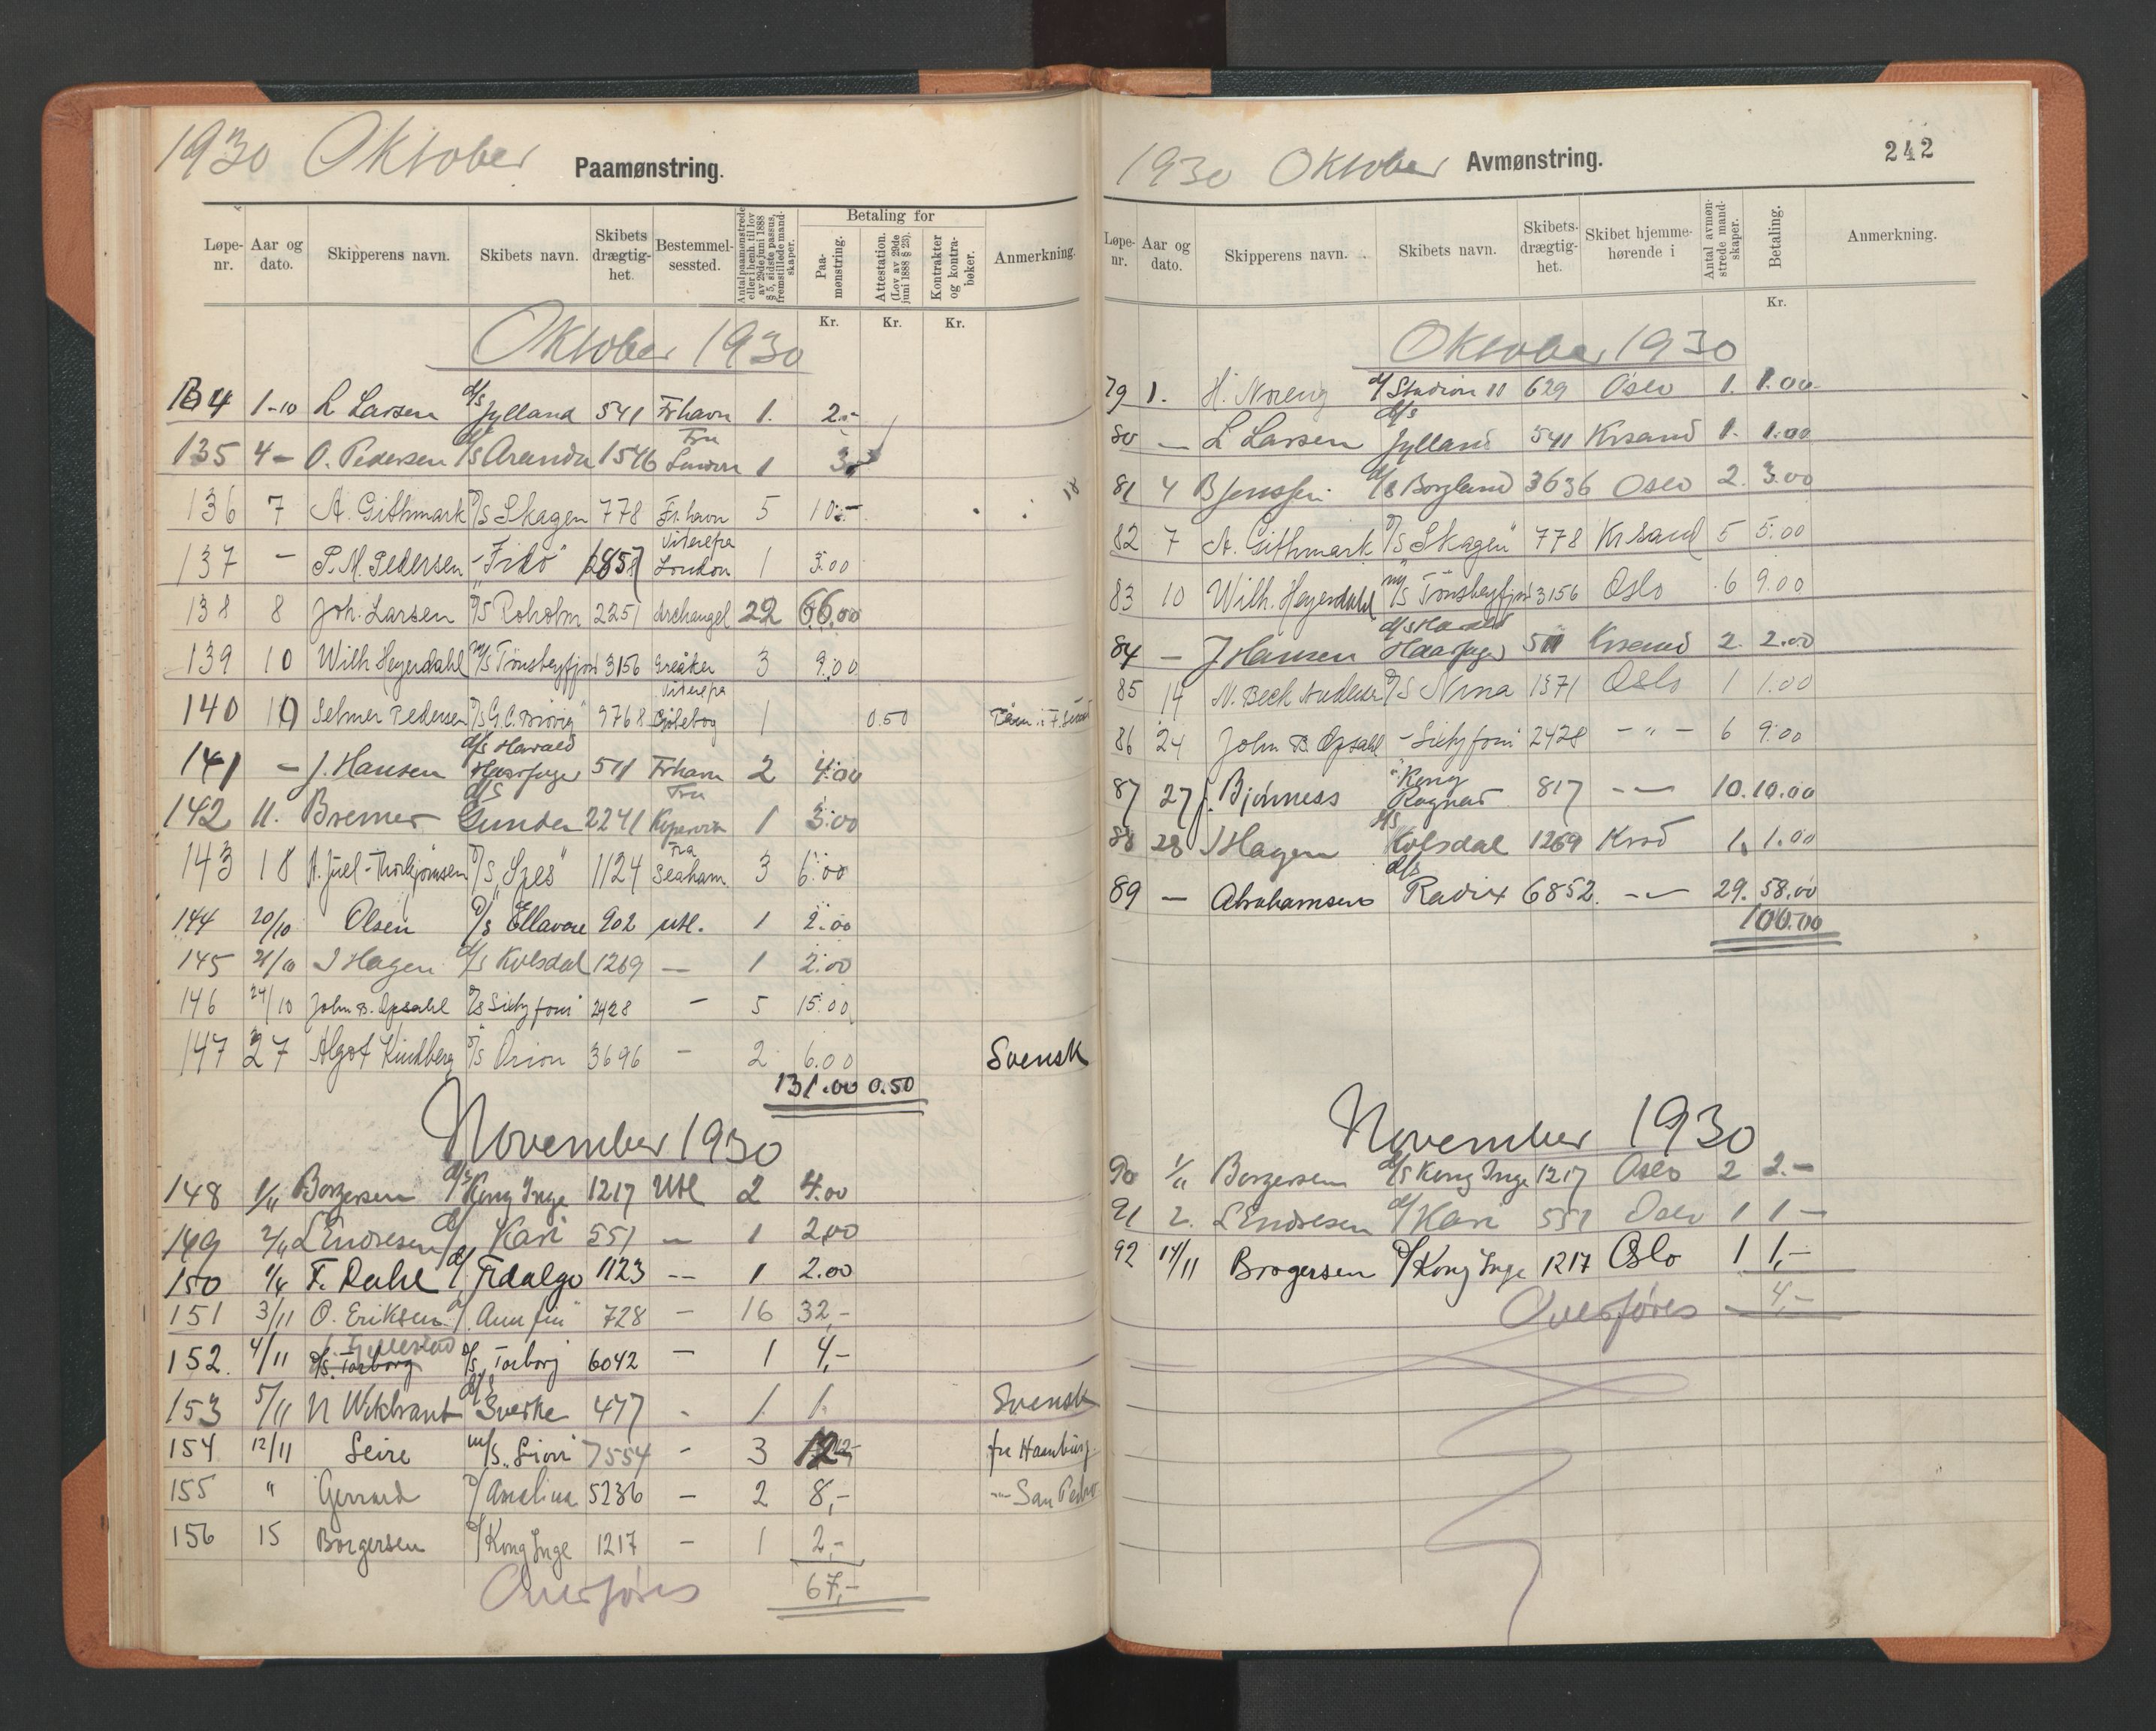 1930 Oktober Paamønstring.
Løpe-nr. Aar og dato. Skipperens navn. Skibets navn. Skibets drægtig-het. Bestemmel-sessted. Antal paamønstrede eller i henh. til lov av 29de juni 1888 § 5, sidste passus, fremstillede mand-skaper. Betaling for Paa-mønstring. Attestation. (Lov av 29de juni 1888 § 23). Kontrakter og kontra-bøker. Anmerkning.
Kr. Kr. Kr.
Oktober 1930
134 1-10 L Larsen d/s Jylland 541 Frhavn 1. 2.-
135 4 - O. Pedersen d/s 1546 Fra London 1 3.-
136 7 A. Githmark D/S Skagen 778 Fr. havn 5 10.-
137 - P. M. Pedersen - "Fido" 1857 Videre fra London 1 3.00
138 8 Joh. Larsen D/S Roholm 2251 Archangel 22 66.00
139 10 Wilh Heyerdahl M/S Tönsbergfjord 3156 Greåker 3 9.00
140 10 Selmer Pedersen D/S G. C. Brövig" 9768 Videre fra Göteborg 1 0.50
141 - J. Hansen d/s Harald Haarfager 511 Frhavn 2 4.00
142 11. Bremer d/s Gunda 2241 Fra 1 3.00
143 18 A. Juel-Thorbjörnsen D/S "Spes" 1124 Fra Seaham 3 6.00
144 20/10 Olsen D/s Ellavore 902 utl. 1 2.00
145 21/10 J Hagen d/s Kolsdal 1269 - 1 2.00
146 24/10 John B. Opsahl D/S 2428 - 5 15.00
147 27 Algot Kindberg D/S Orion 3696 - 2 6.00 Svensk
131.00 0.50
November 1930
148 1/11 Borgersen d/s Kong Inge 1217 Utl 2 4.00
149 2/11 L Endresen d/ Kari 551 - 1 2.00
150 F. Dahl d/ Fidalgo 1123 -- 1 2.00
151 3/11 O. Eriksen d/. 728 - 16 32,-
152. 4/11 d/s. Torborg D/S "Torborg 6042 - 1 4,-
153 5/11 N d/s Sverke 477 - 1. 1. Svensk
154 12/11 Seire m/s. 7554 - 3 12,- fra Hamburg
155 " Gerrard D/ Amalina 5236 - 2 8,- -"- San Pedro
156 15 Borgersen d/ Kong Inge 1217 - 1 2,-
Overføres 67,-
1930 Oktober Avmønstring. 242
Løpe-nr. Aar og dato. Skipperens navn. Skibets navn. Skibets-drægtig-het. Skibet hjemme-hørende i Antal avmøn-strede mand-skaper. Betaling. Anmerkning.
Kr.
Oktober 1930
79 1. H. Noreng d/ Stadion II 629 Oslo 1. 1.00
80 - L Larsen d/s Jylland 541 Krsand 1. 1.00
81 4 B Jenssen d/s Borgland 3636 Oslo 2. 3.00
82 7 A. Githmark D/S "Skagen" 778 Kr sand 5 5.00
83 10 Wilh. Heyerdahl M/S Tönsbergfjord 3156 Oslo 6 9.00
84 - J Hansen d/s Harald Haarfager 511 Krsand 2. 2.00
85 14 N. Beck Andersen D/S Nina 1371 Oslo 1 1.00
86 24 John B. Opsahl - 2428 - " - 6 9.00
87 27 J. Bjönness " Kong Ragnar 817 - - 10. 10.00
88 28 J Hagen d/s Kolsdal 1269 Krsd 1. 1.00
89 - Abrahamsen d/s Radix 6852. - - 29. 58.00
100.00
November 1930
90 1/11 Borgersen d/s Kong Inge 1217 Oslo 2 2.-
91 2. L Endresen d/ Kari 551 Oslo 1 1 -
92 14/11 Brogersen D/ Kong Inge 1217 Oslo 1 1,-
Overføres 4,-